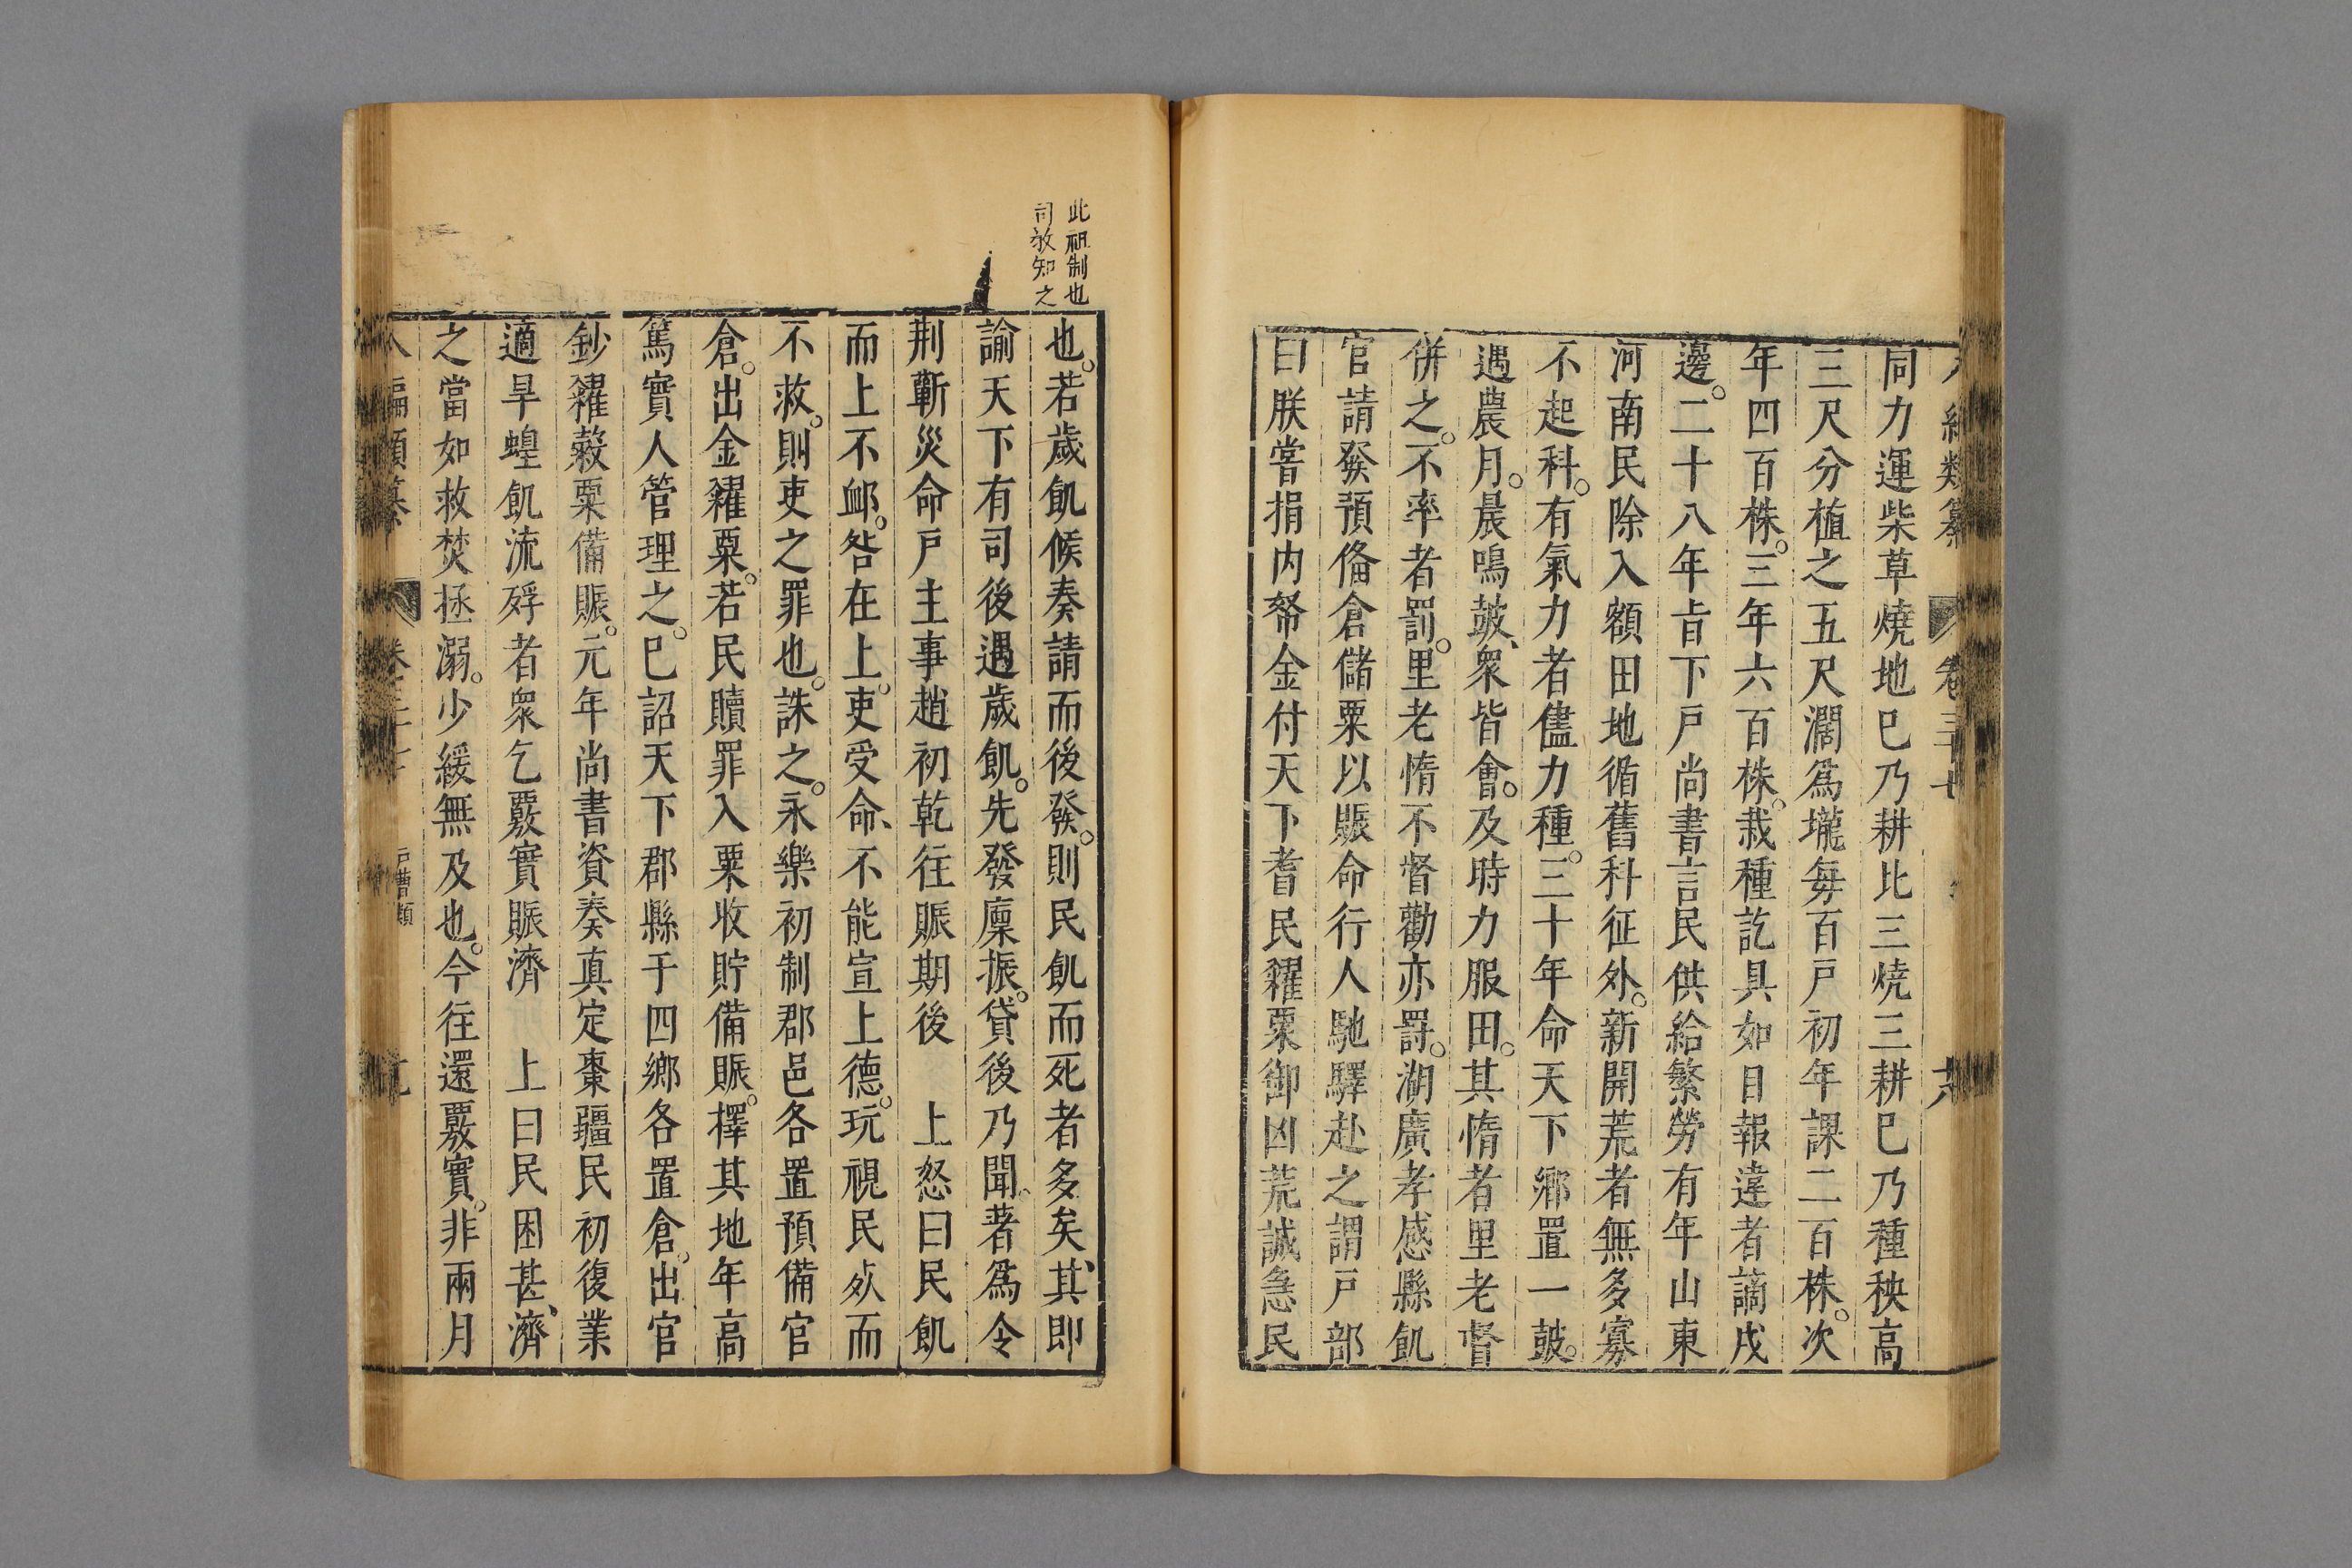 同力運柴草燒地巳乃耕比三燒三耕巳乃種秧高
三尺分植之五尺濶爲壠每百戸初年課二百株。次
年四百株。三年六百株。栽種訖具如目報違者謫戍
邊。二十八年㫖下戸尚書言民供給繁勞有年山東
河南民除入額田地循舊科征外。新開荒者無多寡
不起科。有氣力者儘力種。三十年命天下鄉置一皷。
遇農月。晨鳴皷、衆皆會。及時力服田。其惰者里老督
併之。不率者罰。里老惰不督勸亦罰。湖廣孝感縣飢
官請發預俻倉儲粟以賑命行人馳驛赴之謂戸部
曰朕甞捐内帑金付天下耆民糴粟御凶荒誠急民
此祖制也
司教知之
也。若歲飢候奏請而後發。則民飢而死者多矣、其即
諭天下有司後遇歲飢。先發廩振。貸後乃聞。著爲令
荆蘄災命戸主事趙初乾往賑期後 上怒曰民飢
而上不䘏。咎在上。吏受命、不能宣上德。玩視民㱙而
不救。則吏之罪也。誅之。永樂初制郡邑各置預備官
倉。出金糴粟。若民贖罪入粟收貯備賑。擇其地年高
篤實人管理之。巳詔天下郡縣于四鄉各置倉。出官
鈔糴穀粟備賑。元年尚書資奏真定棗疆民初復業
適旱蝗飢流殍者衆乞覈實賑濟 上曰民困甚、濟
之當如救焚拯溺。少緩無及也。今往還覈實。非兩月